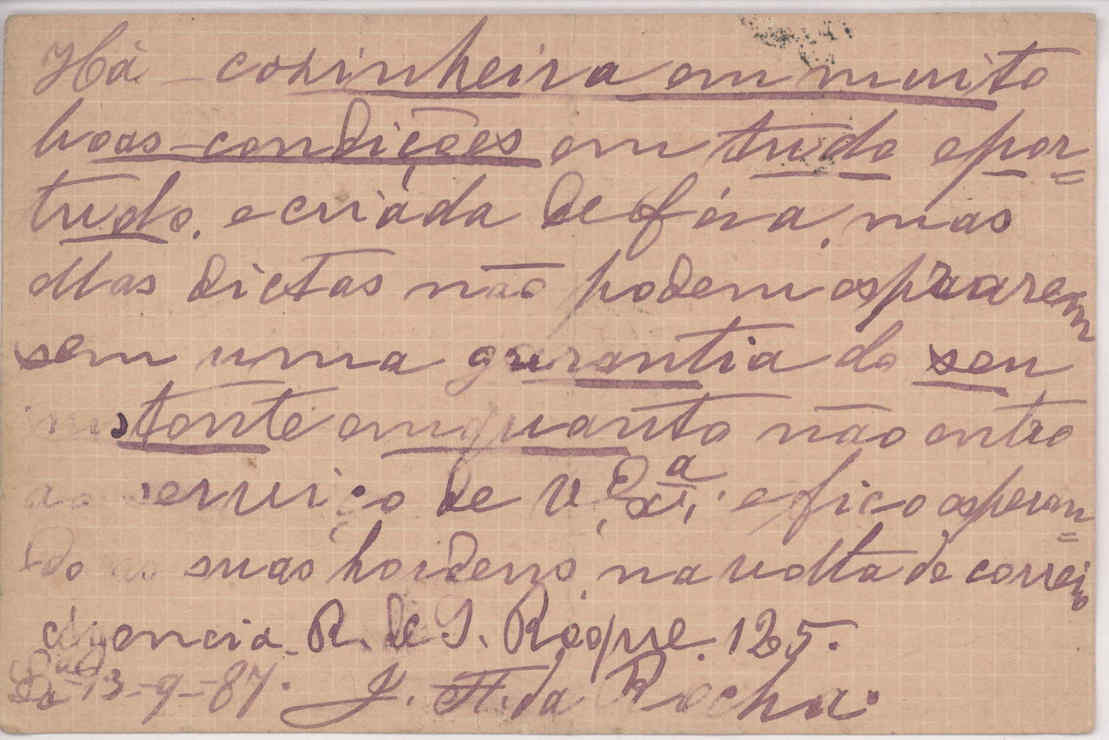 Há - cozinheira em muito
boas-condições em tudo epor=
tudo, e criáda de fóra, mas
ellas dictas não podem espraarem
sem uma garantia do seu
tente emquanto não entre
ao serviço de V. Exª; e fico esperan=
do as suas hordens, na volta do correio
agencia. R. de S. Roque. 125.
13-9-87. J. F. da Rocha.